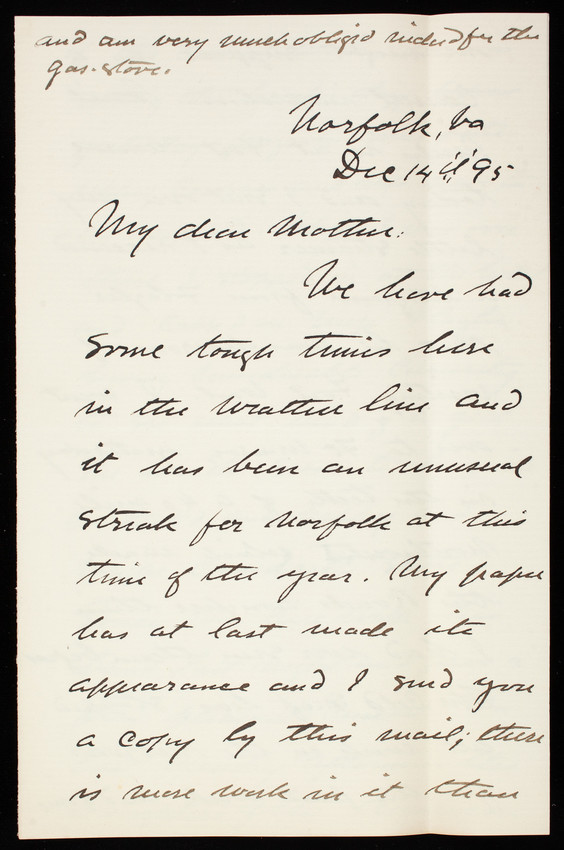 and am very much oblig'd indeed for the
gas-stove.
Norfolk, Va
Dec 14th 95
My dear Mother:
We have had
some tough times here
in the weather line and
it has been an unusual
streak for Norfolk at this
time of the year. My paper
has at last made its
appearance and I send you
a copy by this mail; there
is more work in it than